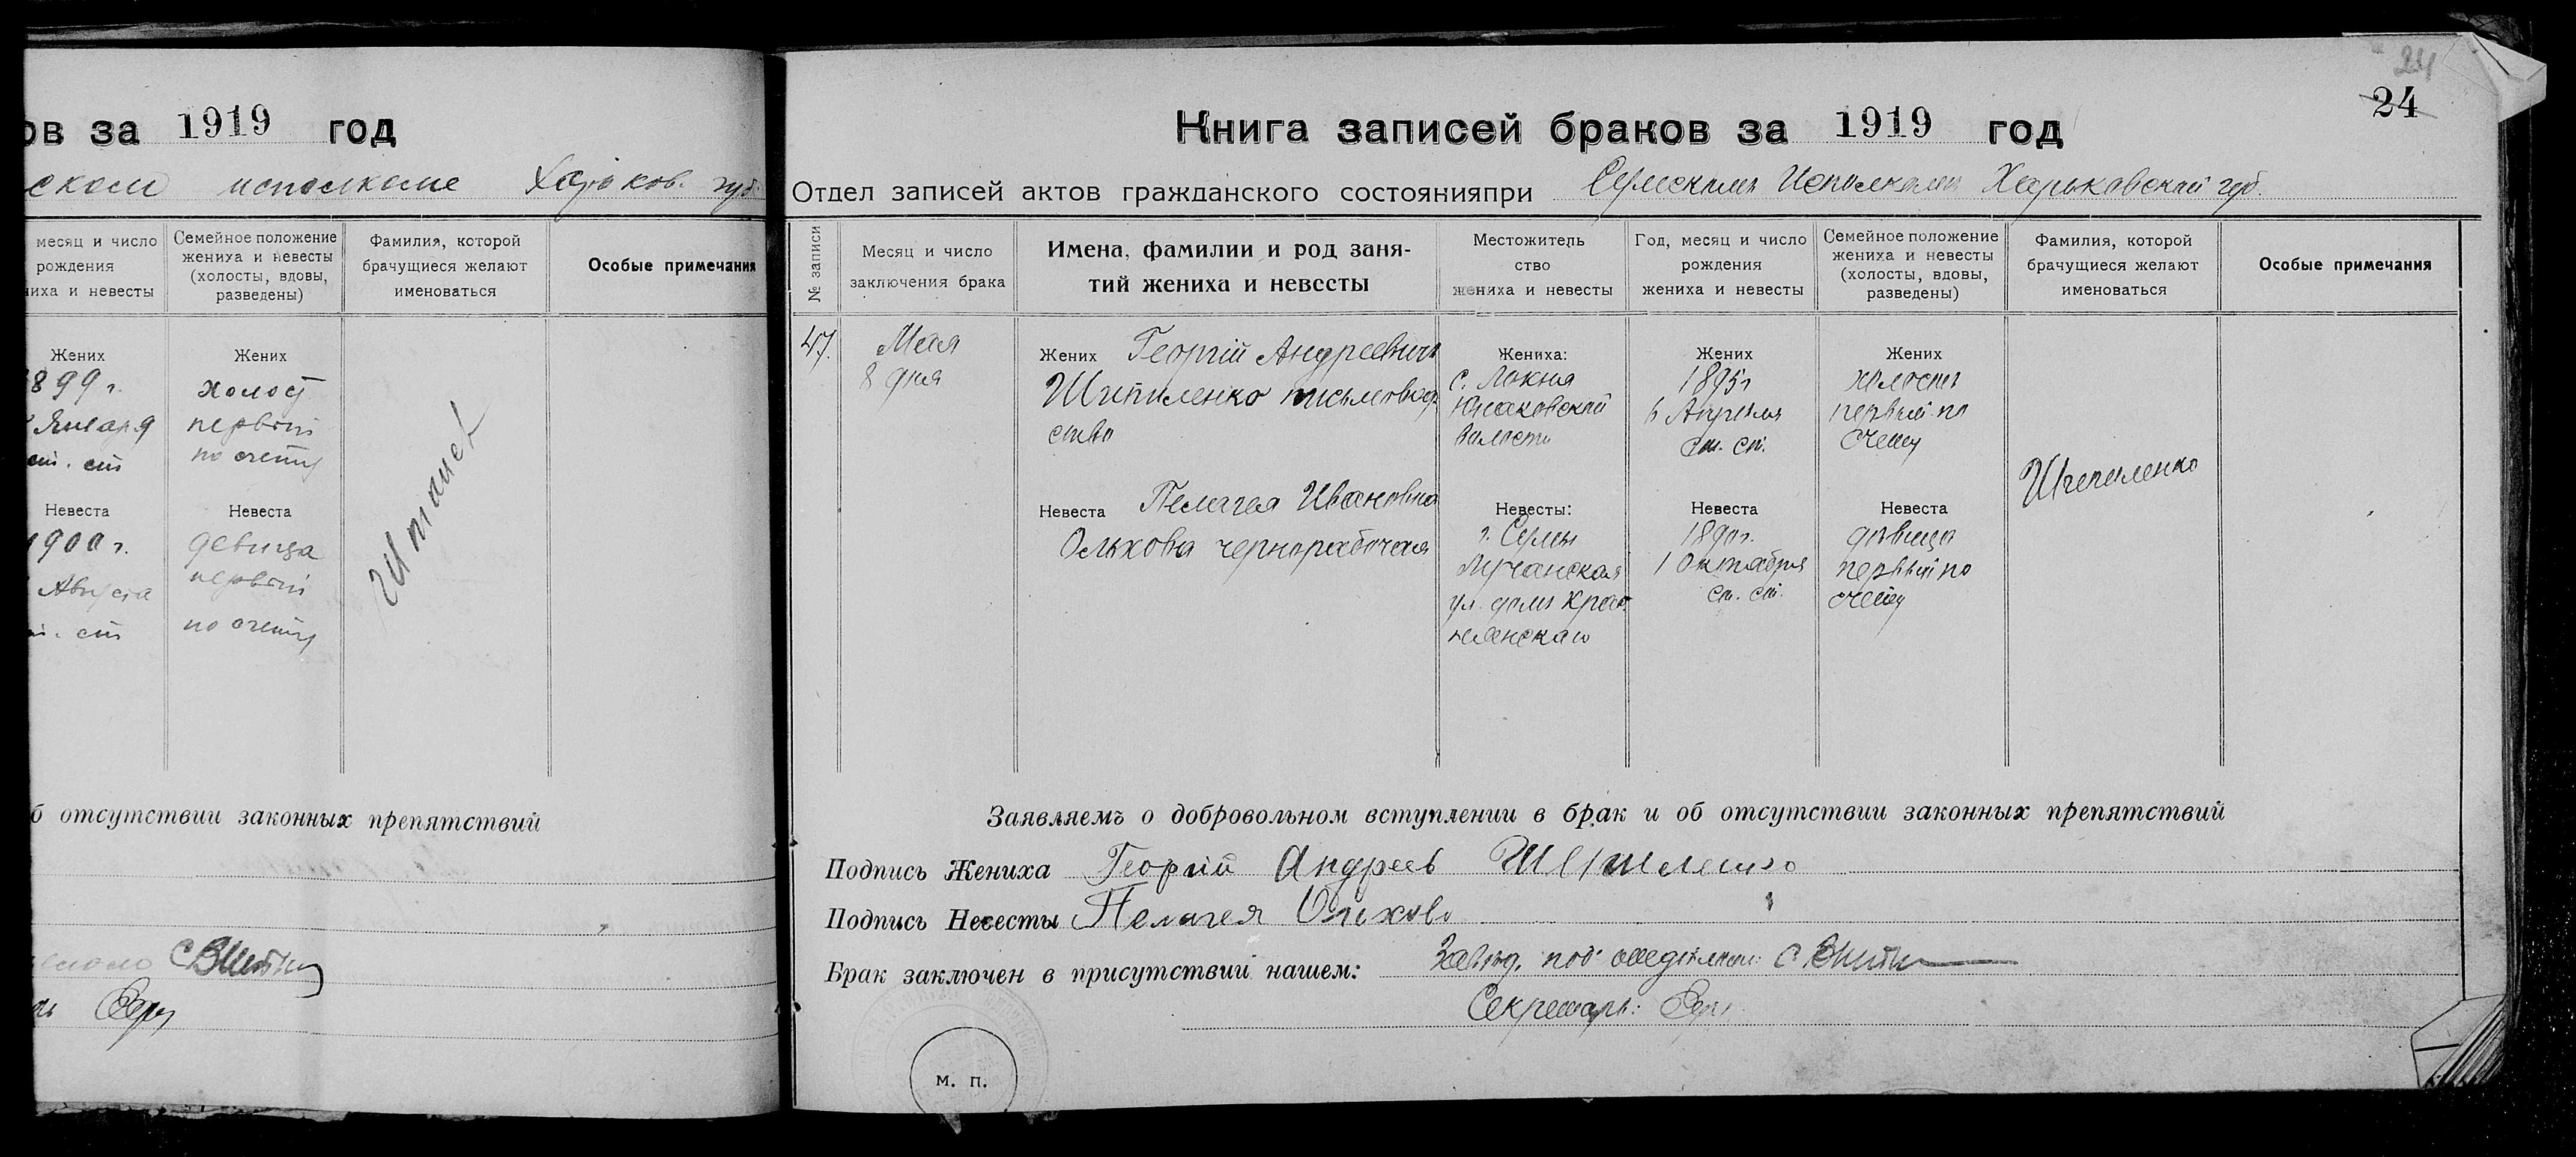 ов за 1919 год
ском исполкоме Харьков. губ.
месяц и число
рождения
ниха и невесты
Семейное положение
жениха и невесты
(холосты, вдовы,
разведены)
Фамилия, которой
брачущиеся желают
именоваться
Особые примечания
Жених
1899 г.
Января
ст. ст
Жених
холост
первый
по счету
Невеста
1900 г.
Августа
ст. ст
Невеста
девица
первый
по счету
б отсутствии законных препятствий
24
24
Книга записей браков за 1919 год
Отдел записей актов гражданского состоянияпри Сумскомъ Исполкоме Харьковской губ.
№ записи
Месяц и число
заключения брака
Имена, фамилии и род заня-
тий жениха и невесты
Местожитель
ство
жениха и невесты
Год, месяц и число
рождения
жениха и невесты
Семейное положение
жениха и невесты
(холосты, вдовы,
разведены)
Фамилия, которой
брачущиеся желают
именоваться
Особые примечания
47.
Мая
8 дня
Жених Георгій Андреевичъ
Шипиленко письмовод
ство
Жениха:
с. Локня
Юнаковской
Волости
Жених
1895 г
6 Апреля
ст. ст.
Жених
холостъ
первый по
счету
Невеста Пелагея Ивановна
Ольхова чернорабочая
Невесты:
г. Сумы
Лучанская
ул. домъ
Невеста
1890 г.
1 Октября
ст. ст.
Невеста
девица
первый по
счету
Шипиленко
Заявляемъ о добровольном вступлении в брак и об отсутствии законных препятствий
Подпись Жениха Георгий Андреев Шипиленко
Подпись Невесты Пелагея Ольхова
Брак заключен в присутствий нашем: Завед. под отделом:
Секретарь:
м. п.